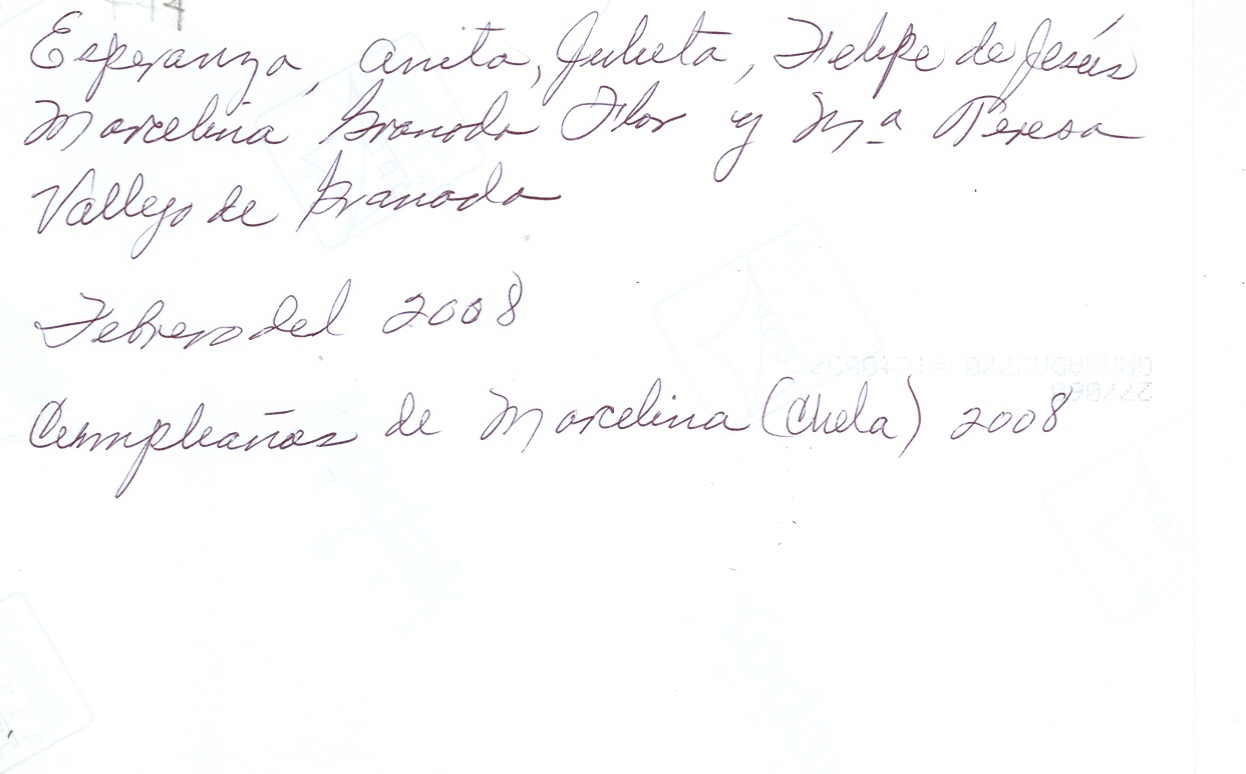 Esperanza, Anita, Julieta, Felipe de Jesús
Marcelina Granada Flor y Mª Teresa
Vallejo de Granada
Febrero del 2008
Cumpleaños de Marcelina (Chela) 2008